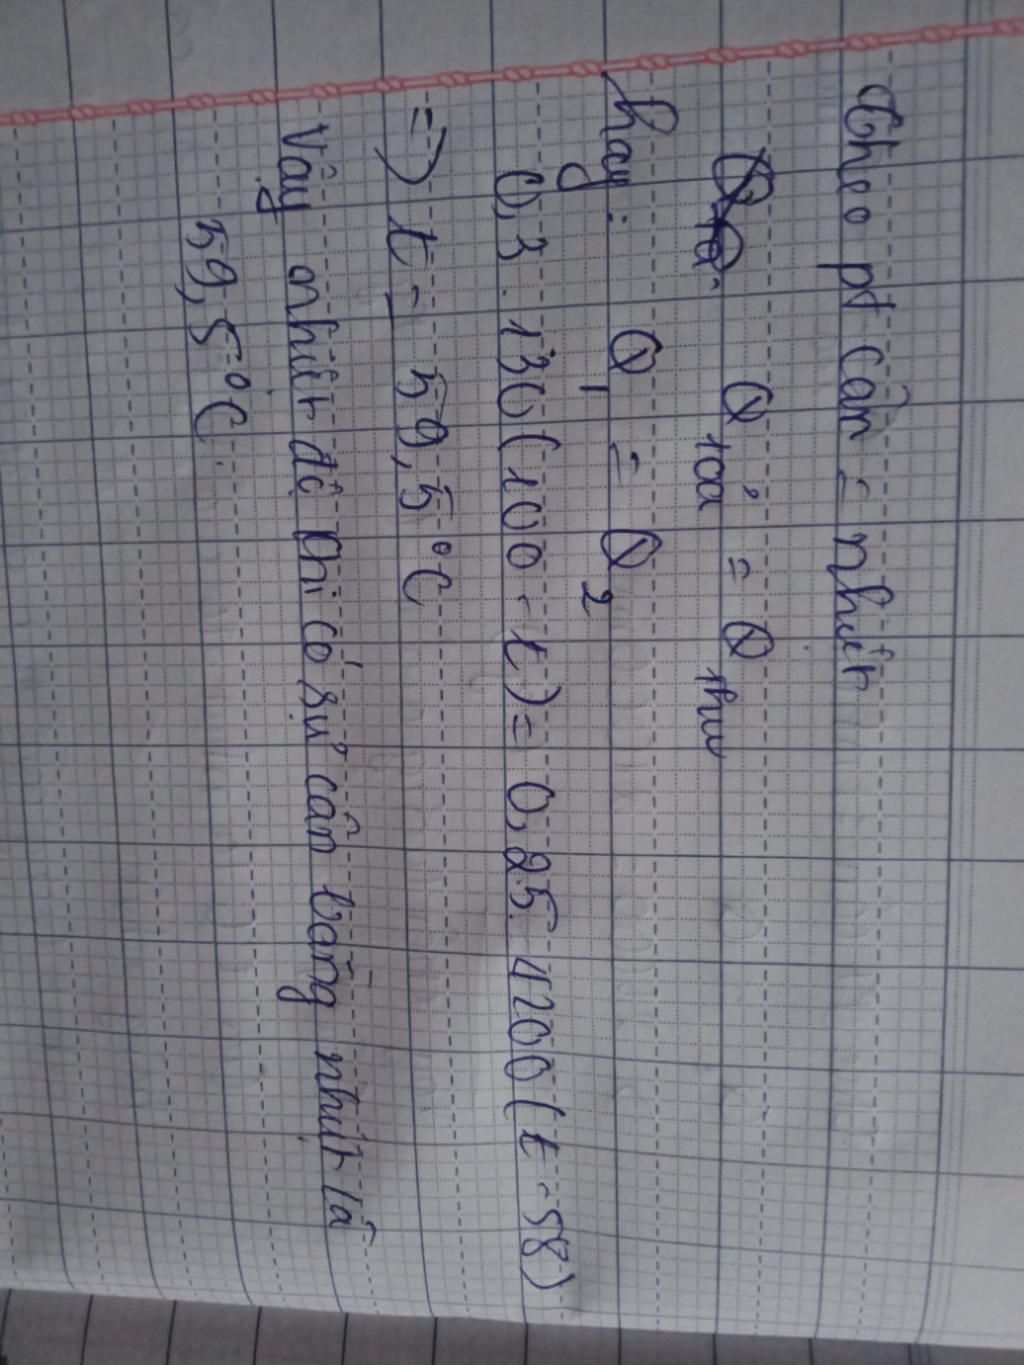 Theo pt cân = nhiệt
Q tỏa = Q thu
hay: Q1 = Q2
0,3 . 130 (100 - t) = 0,25 . 4200 (t - 58)
=) t = 59,5°C
Vậy nhiệt độ khi có sự cân bằng nhiệt là
59,5°C.